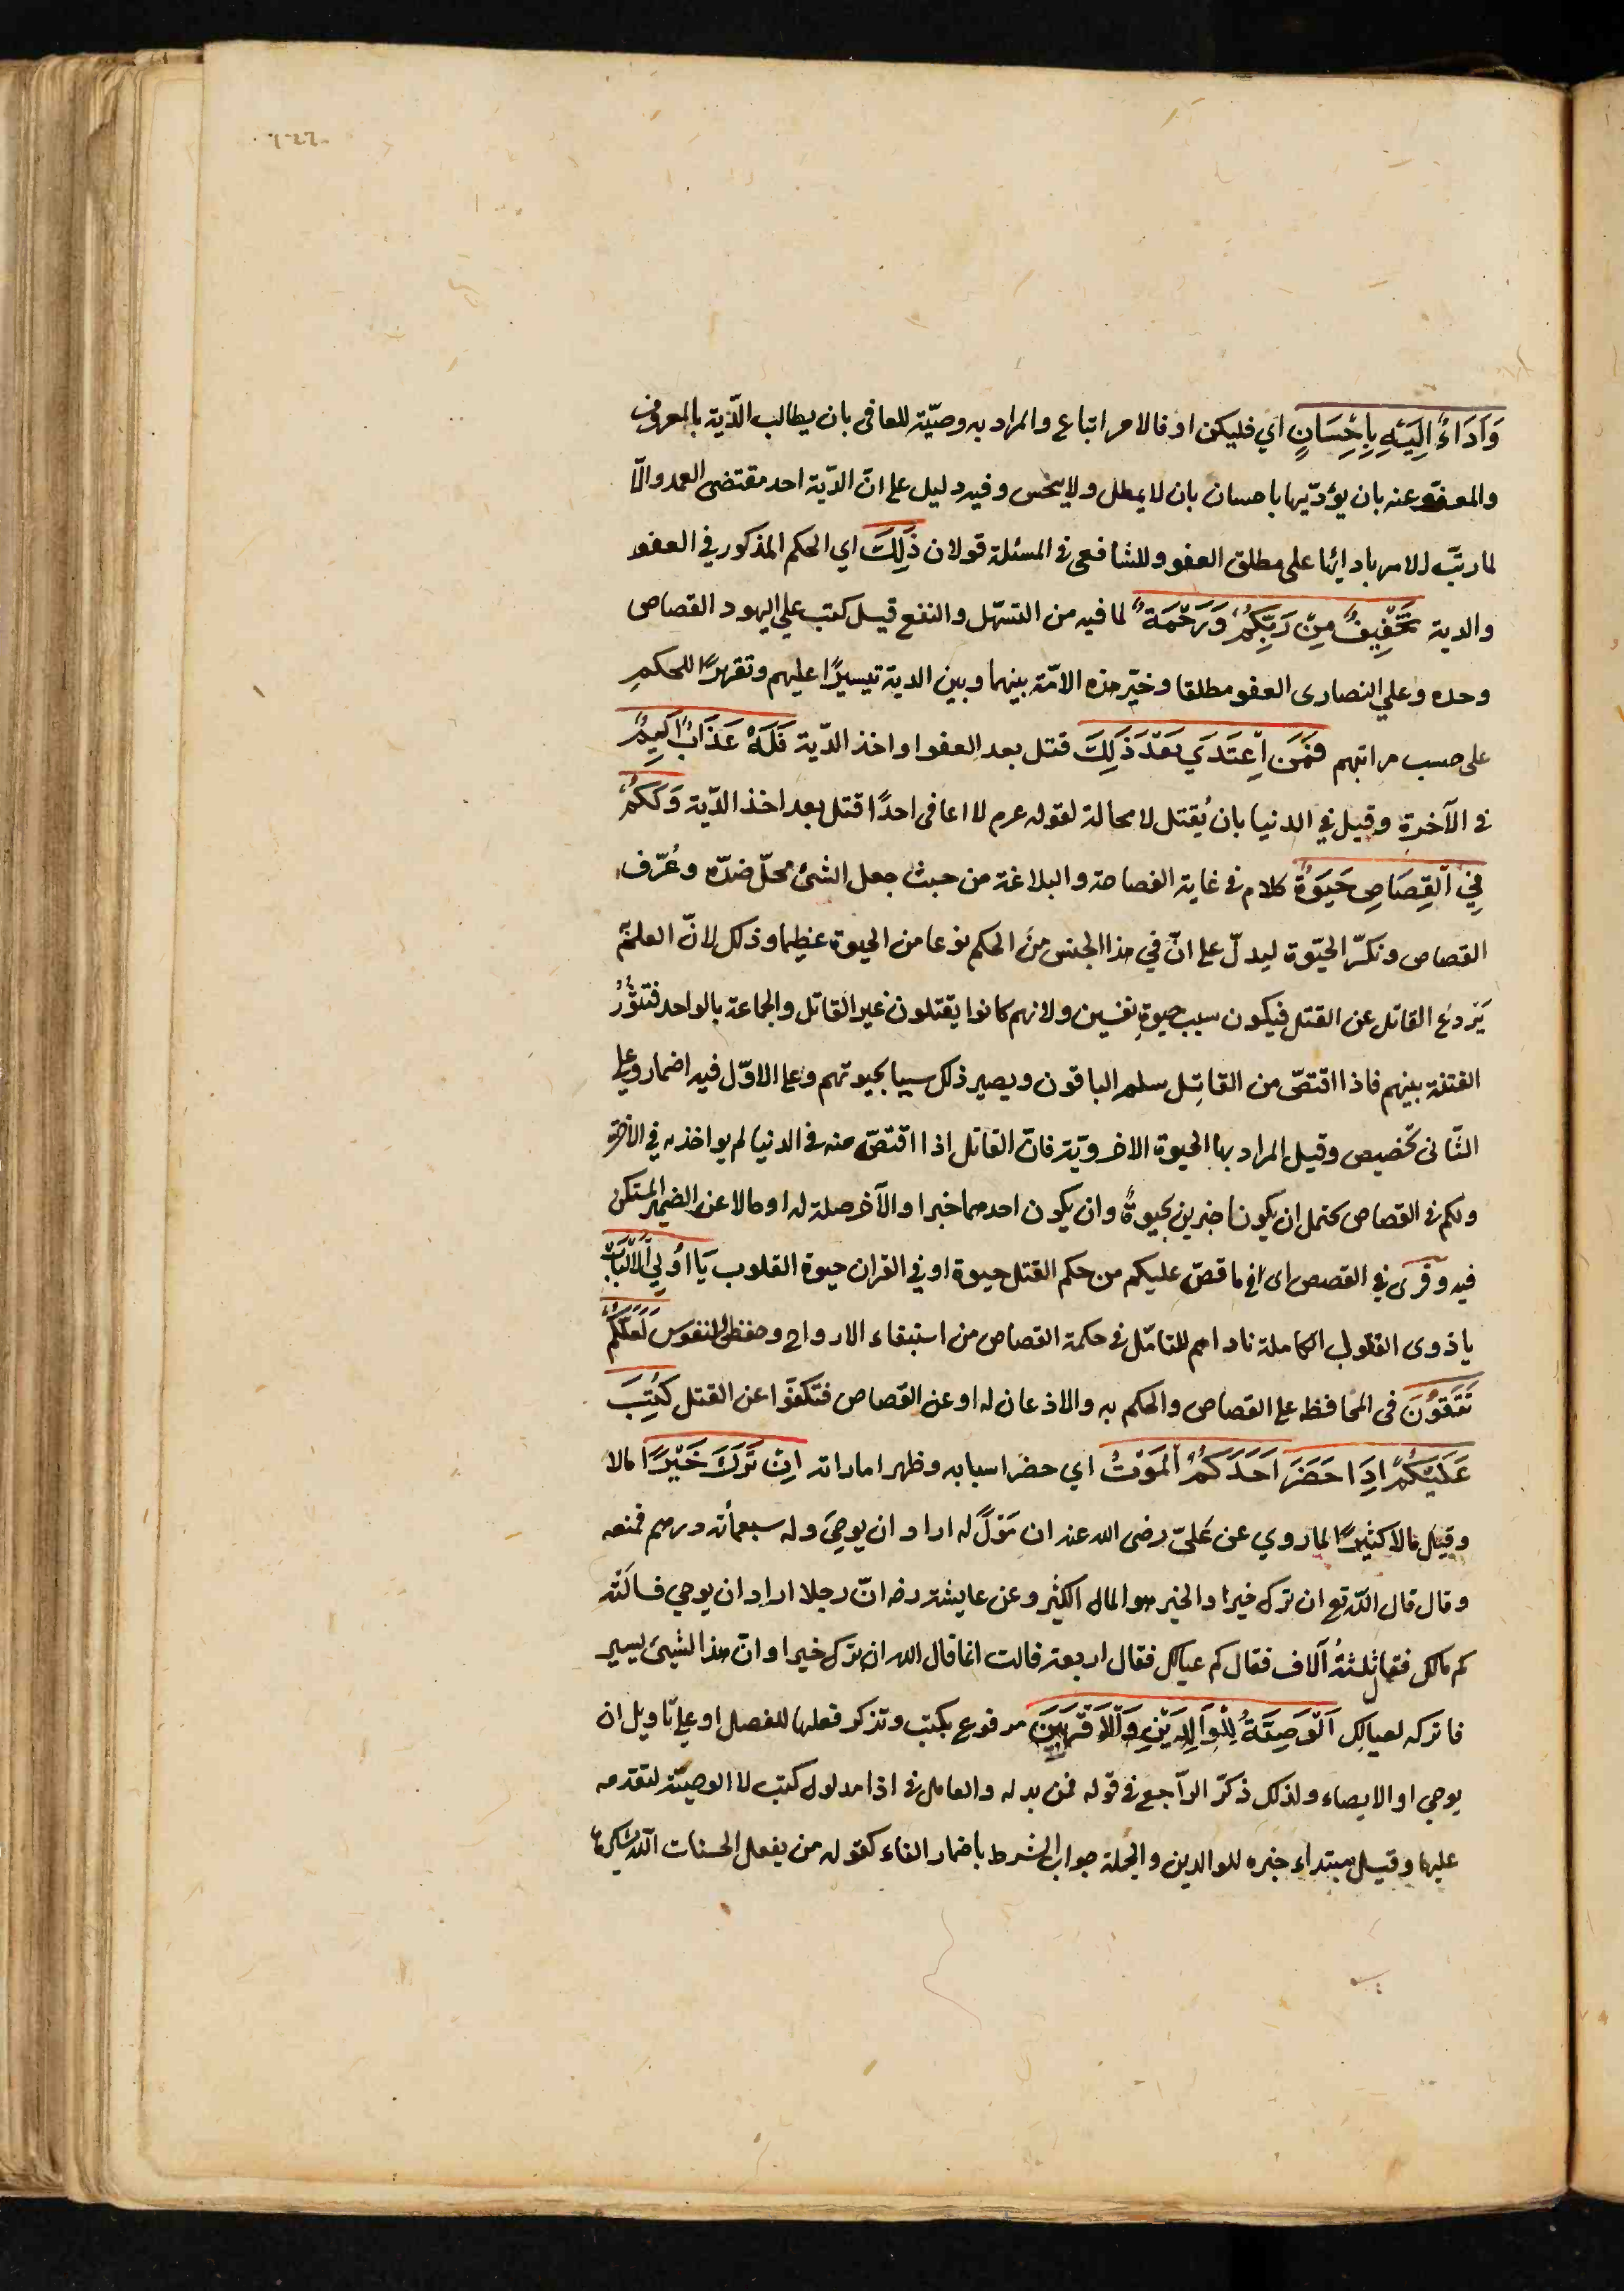 وَاَدَاءٌ اِلَيْهِ بِاِحْسَانٍ اي فليكن او فالامر اتباع والمراد به وصيّة للعافى بان يطالب الدّية بالمعروف
والمعفوّ عنه بان يؤدّيها باحسان بان لا يمطل ولا يبخس وفيه دليل على انّ الدّية احد مقتضى العمد والّا
لما رتّب الامر بادائها على مطلق العفو وللشافعى فى المسئلة قولان ذٰلِكَ اي الحكم المذكور في العفو
والدية تَخْفِيفٌ مِنْ رَبِّكُمْ وَرَحْمَةٌ لما فيه من التسهّل والنفع قيل كتب علي اليهود القصاص
وحده وعلي النصارى العفو مطلقا وخيّر هذه الامّة بينهما وبين الدية تيسيرًا عليهم وتقريرًا للحكمِ
على حسب مراتبهم فَمَنِ اعْتَدَي بَعْدَ ذٰلِكَ قتل بعد العفو او اخذ الدّية فَلَهُ عَذَابٌ اَلِيمٌ
فى الآخرة وقيل في الدنيا بان يُقتل لا محالة لقوله عرم لا اعافى احدًا قتل بعد اخذ الدّية وَلَكُمْ
فِي الْقِصَاصِ حَيٰوةٌ كلام فى غاية الفصاحة والبلاغة من حيث جعل الشئ محلّ ضدّه وعُرّف
القصاص ونكّر الحيٰوة ليدلّ على انّ في هذا الجنس مِنَ الحكم نوعا من الحيوة عظيما وذلك لانّ العلم به
يَرْدَعُ القاتل عن القتل فيكون سبب حيوةِ نفسين ولانهم كانوا يقتلون غير القاتل والجماعة بالواحد فتثوُر
الفتنة بينهم فاذا اقتصّ من القاتِل سلم الباقون ويصير ذلك سببا بحيوتهم وعلى الاوّل فيه اضمار وعلى
الثّانى تخصيص وقيل المراد بها الحيوة الاخرويّة فانّ القاتل اذا اقتصّ منه فى الدنيا لم يواخذ به في الاخرة
ولكم فى القصاص يحتمل ان يكونا خبرين بحيوةٌ وان يكون احدهما خبرا والآخر صلة له او حالا عن الضمير المستكن
فيه وقرئ في القصص اى في ما قصّ عليكم من حكم القتل حيوة او في القران حيوة القلوب يَا اُولِي الْاَلْبَابِ
يا ذوى العقول الكاملة ناداهم للتامّل فى حكمة القصاص من استبقاء الارواح وحفظ النفوس لَعَلَّكُمْ
تَتَّقُونَ فى المحافظه على القصاص والحكم به والاذعان له او عن القصاص فتكفّوا عن القتل كُتِبَ
عَلَيْكُمْ اِذَا حَضَرَ اَحَدَكُمُ الْمَوْتُ اي حضر اسبابه وظهر اماراته اِنْ تَرَكَ خَيْرًا مالا
وقيل مالا كثيرًا لما روي عن عَليّ رضى الله عنه ان مَوْلًى له اراد ان يوصِيَ وله سبعمأنة درهم فمنعه
وقال قال الله تع ان ترك خيرا والخير هو المال الكثير وعن عايشة رضه انّ رجلا اراد ان يوصي فسالَتْه
كم مالك فقال ثلثةُ آلاف فقال كم عيالك فقال اربعة قالت انما قال الله ان ترك خيرا وانّ هذا الشيئ يسير
فاتركه لعيالِك اَلْوَصِيَّةُ لِلْوَالِدَيْنِ وَالْاَقْرَبِينَ مرفوع بكتب وتذكر فعلها للفصل او على تاويل ان
يوصي او الايصاء ولذلك ذكّر الرّاجع فى قوله فمن بدله والعامل فى اذا مدلول كتب لا الوصيّة لتقدمه
عليها وقيل مبتداء خبره للوالدين والجملة جواب الشرط باضمار الفاء كقوله من يفعل الحسنات الله يشكرها